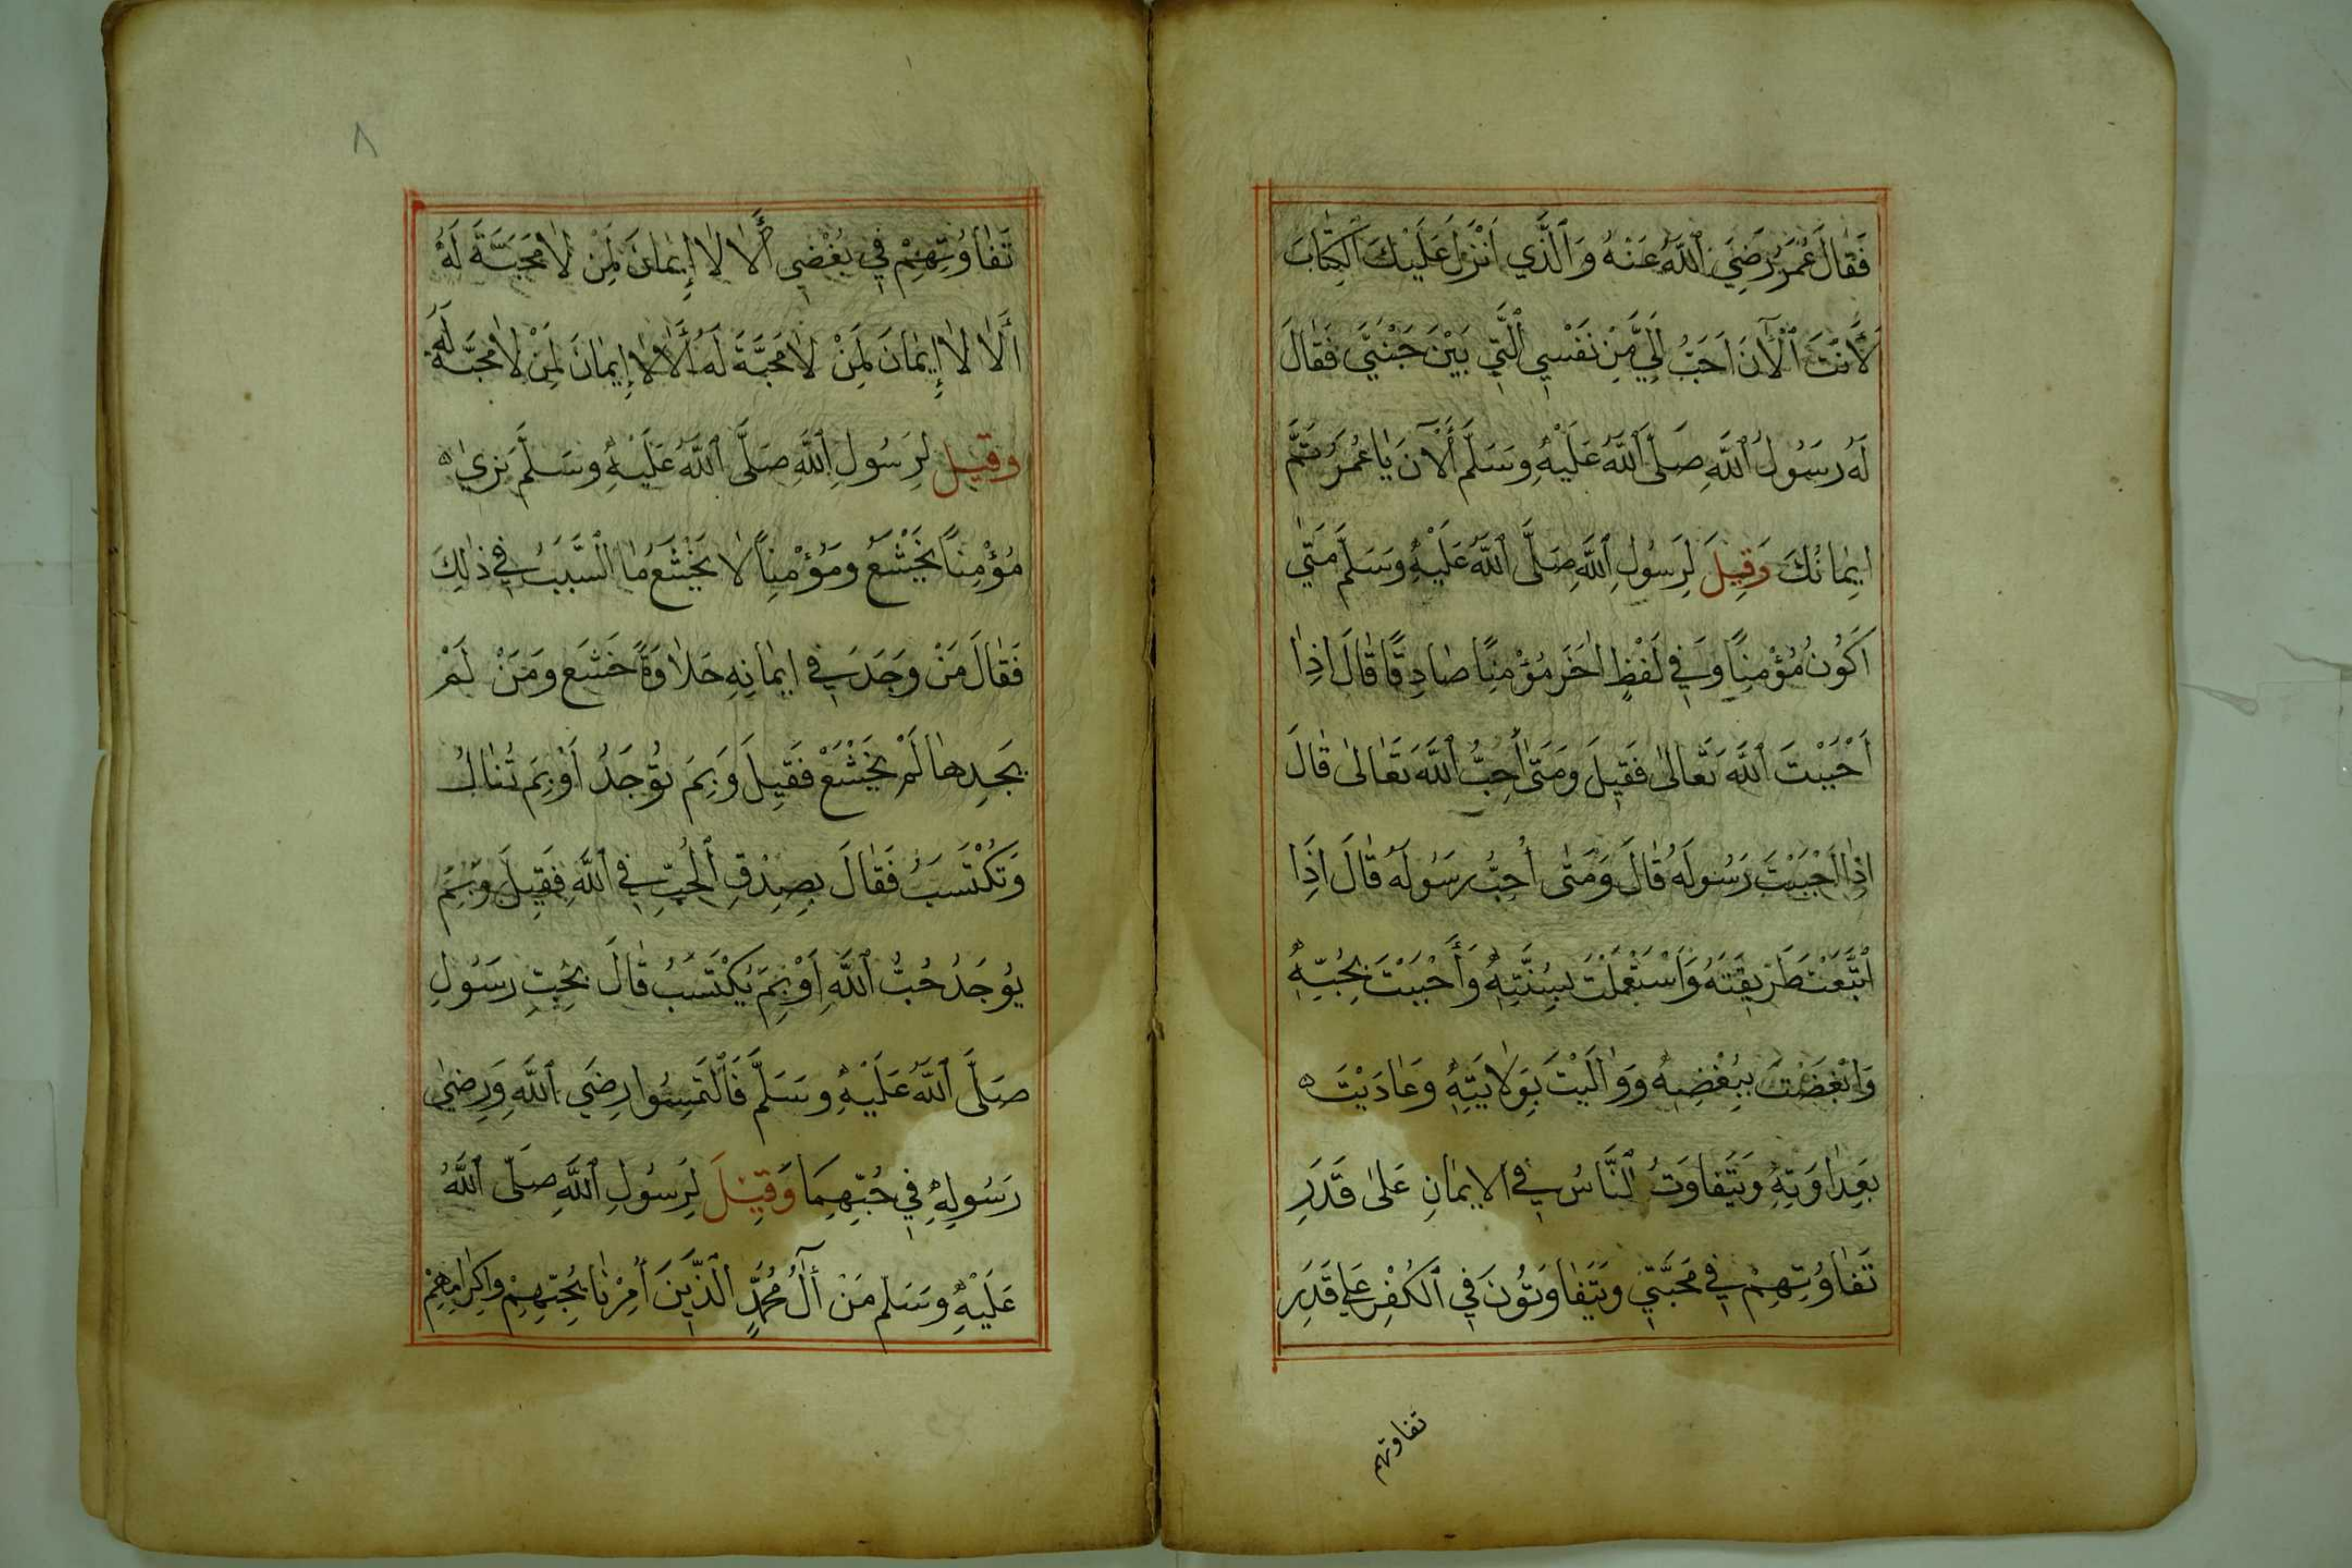 فَقَالَ عُمَرُ رَضِيَ اللَّهُ عَنْهُ وَالَّذِي أَنْزَلَ عَلَيْكَ الْكِتَابَ
لَأَنْتَ الْآنَ اَحَبُّ اِلَيَّ مِنْ نَفْسِي الَّتِي بَيْنَ جَنْبَيَّ فَقَالَ
لَهُ رَسُولُ اللَّهِ صَلَّى اللَّهُ عَلَيْهِ وَسَلَّمَ أَلْآنَ يَا عُمَرُ تَمَّ
ايِمَانُكَ وَقِيلَ لِرَسُولِ اللَّهِ صَلَّى اللَّهُ عَلَيْهِ وَسَلَّمَ مَتَى
اَكُونُ مُؤْمِنًا وَفِي لَفْظٍ اٰخَرَ مُؤْمِنًا صَادِقًا قَالَ اِذَا
اَحْبَبْتَ اللَّهَ تَعَالَى فَقِيلَ وَمَتَى أُحِبُّ اللَّهَ تَعَالَى قَالَ
اِذَا اَحْبَبْتَ رَسُولَهُ قَالَ وَمَتَى اُحِبُّ رَسُولَهُ قَالَ اِذَا
اتَّبَعْتَ طَرِيقَتَهُ وَاسْتَعْمَلْتَ بِسُنَّتِهِ وَأَحْبَبْتَ بِحُبِّهِ
وَابْغَضْتَ بِبُغْضِهِ وَوَالَيْتَ بِوَلَايَتِهِ وَعَادَيْتَ
بِعَدَاوَتِهِ وَيَتَفَاوَتُ النَّاسُ فِي الايمَانِ عَلَى قَدَرِ
تَفَاوُتِهِمْ فِي مَحَبَّتِي وَيَتَفَاوَتُونَ فِي الْكُفْرِ عَلَى قَدَرِ
تفاوتهم
٨
تَفَاوُتِهِمْ فِي بُغْضِي أَلَا لَا إِيمَانَ لِمَنْ لَا مَحَبَّةَ لَهُ
أَلَا لَا إِيمَانَ لِمَنْ لَا مَحَبَّةَ لَهُ أَلَا لَا إِيمَانَ لِمَنْ لَا مَحَبَّةَ لَهُ
وقيل لِرَسُولِ اللَّهِ صَلَّى اللَّهُ عَلَيْهِ وسَلَّمَ نرى
مُؤْمِنًا يَخْشَعُ ومُؤْمِنًا لَا يَخْشَع مَا السَّبَبُ فِي ذَلِكَ
فَقَالَ مَنْ وَجَدَ فِي ايمَانِهِ حَلَاوَةً خَشَعَ وَمَنْ لَمْ
يَجِدهَا لَمْ يَخْشَعْ فَقِيلَ وَبِمَ تُوجَدُ أَوْ بِمَ تُنَالُ
وَتُكْتَسَبُ فَقَالَ بِصِدْقِ الْحُبِّ فِي اللَّهِ فَقِيلَ وَبِمَ
يُوجَدُ حُبُّ اللَّهِ أَوْ بِمَ يُكْتَسَبُ قَالَ بِحُبِّ رَسُولِ
صَلَّى اللَّهُ عَلَيْهِ وسَلَّمَ فَالْتَمِسُوا رِضَى اللَّهِ وَرِضَى
رَسُولِهِ فِي حُبِّهِمَا وَقِيلَ لِرَسُولِ اللَّهِ صَلَّى اللَّهُ
عَلَيْهِ وسَلم مَنْ آلُ مُحَمَّدٍ الَّذِينَ أُمِرْنَا بِحُبِّهِمْ وَاكِرَامِهِمْ